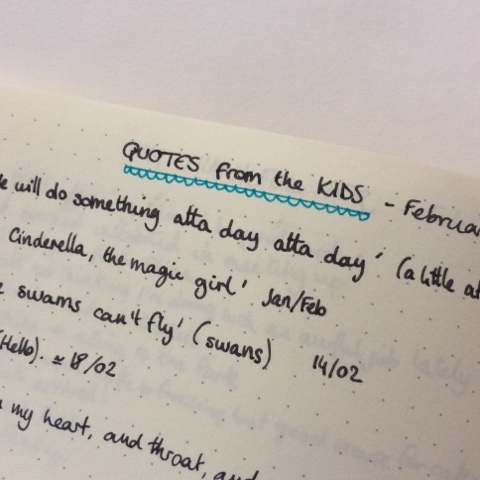 QUOTES from the KIDS - Februa
will do something atta day atta day' (a little at
Cinderella, the magic girl' Jan/Feb
swams can't fly' (swans) 14/02
(Hello). ≃ 18/02
my heart, and throat, and